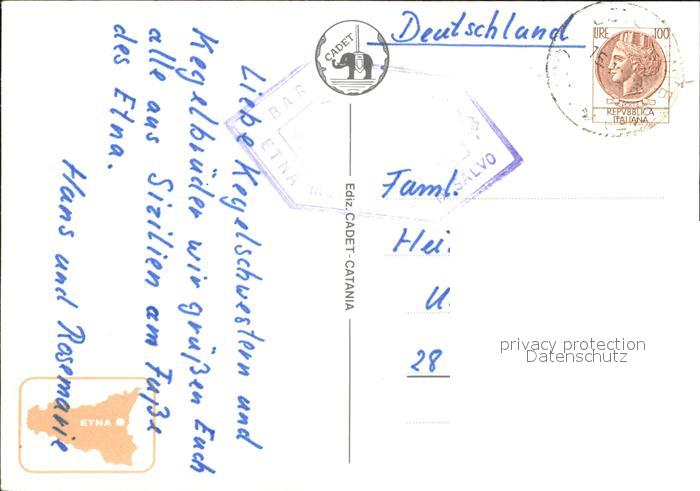 Liebe Kegelschwestern und
Kegelbrüder wir grüßen Euch
alle aus Sizilien am Fuße
des Etna.
Hans und Rosemarie
ETNA
CADET
Ediz. CADET - CATANIA
BAR
ETNA
SALVO
Deutschland
LIRE 100
REPVBBLICA
ITALIANA
Faml.
Hei
U.
28
privacy protection
Datenschutz